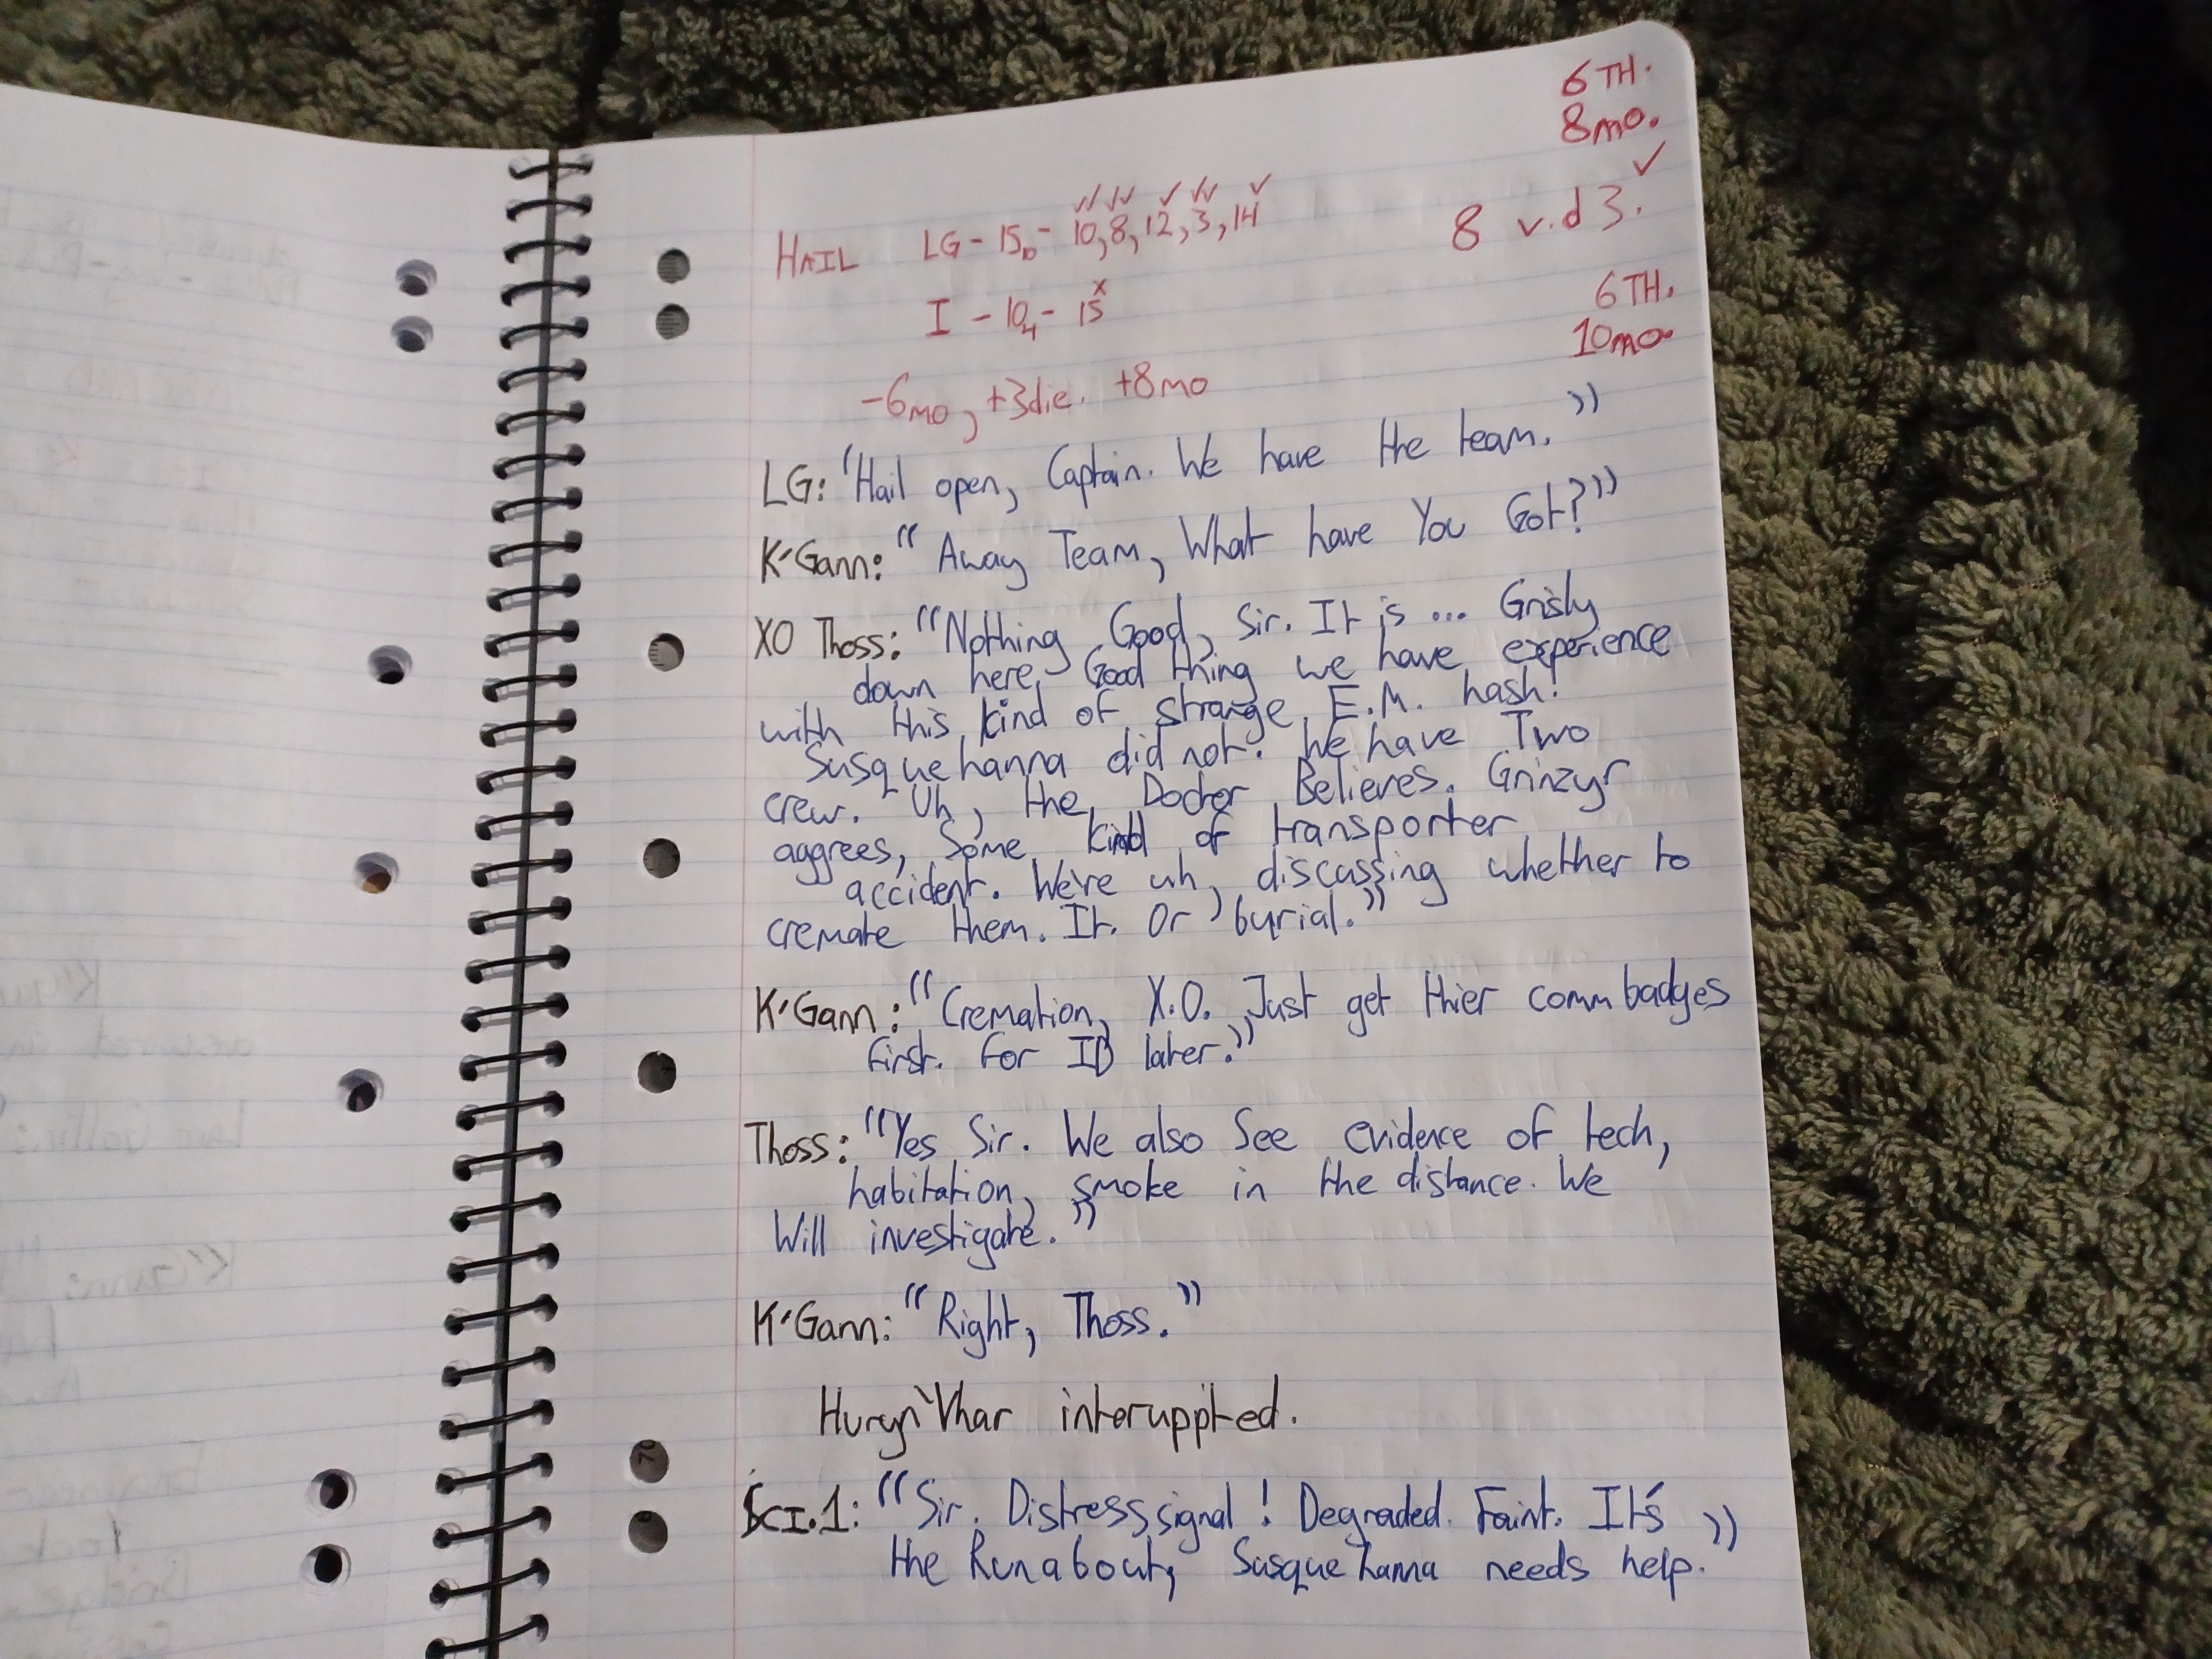 6TH.
8mo.
✓
HAIL LG - 15 10 - 10, 8, 12, 3, 14 8 v. d3.
I - 10 4 - 15 x 6TH.
10mo.
-6mo, +3die. +8mo
LG: "Hail open, Captain. We have the team."
K'Gann: "Away Team, What have You Got?"
XO Thoss: "Nothing Good, Sir. It is ... Grisly
down here. Good thing we have experience
with this kind of strange E.M. hash!
Susquehanna did not. We have Two
crew. Uh, the Doctor Believes. Grinzyr
aggrees, Some kind of transporter
accident. We're uh, discussing whether to
cremate them. It. Or burial."
K'Gann: "Cremation, X.O. Just get thier comm badges
first. For ID later."
Thoss: "Yes Sir. We also See evidence of tech,
habitation, smoke in the distance. We
Will investigate."
K'Gann: "Right, Thoss."
Huryn'Vhar interuppted.
Sci.1: "Sir. Distress signal! Degraded. Faint. It's
the Runabout, Susquehanna needs help."